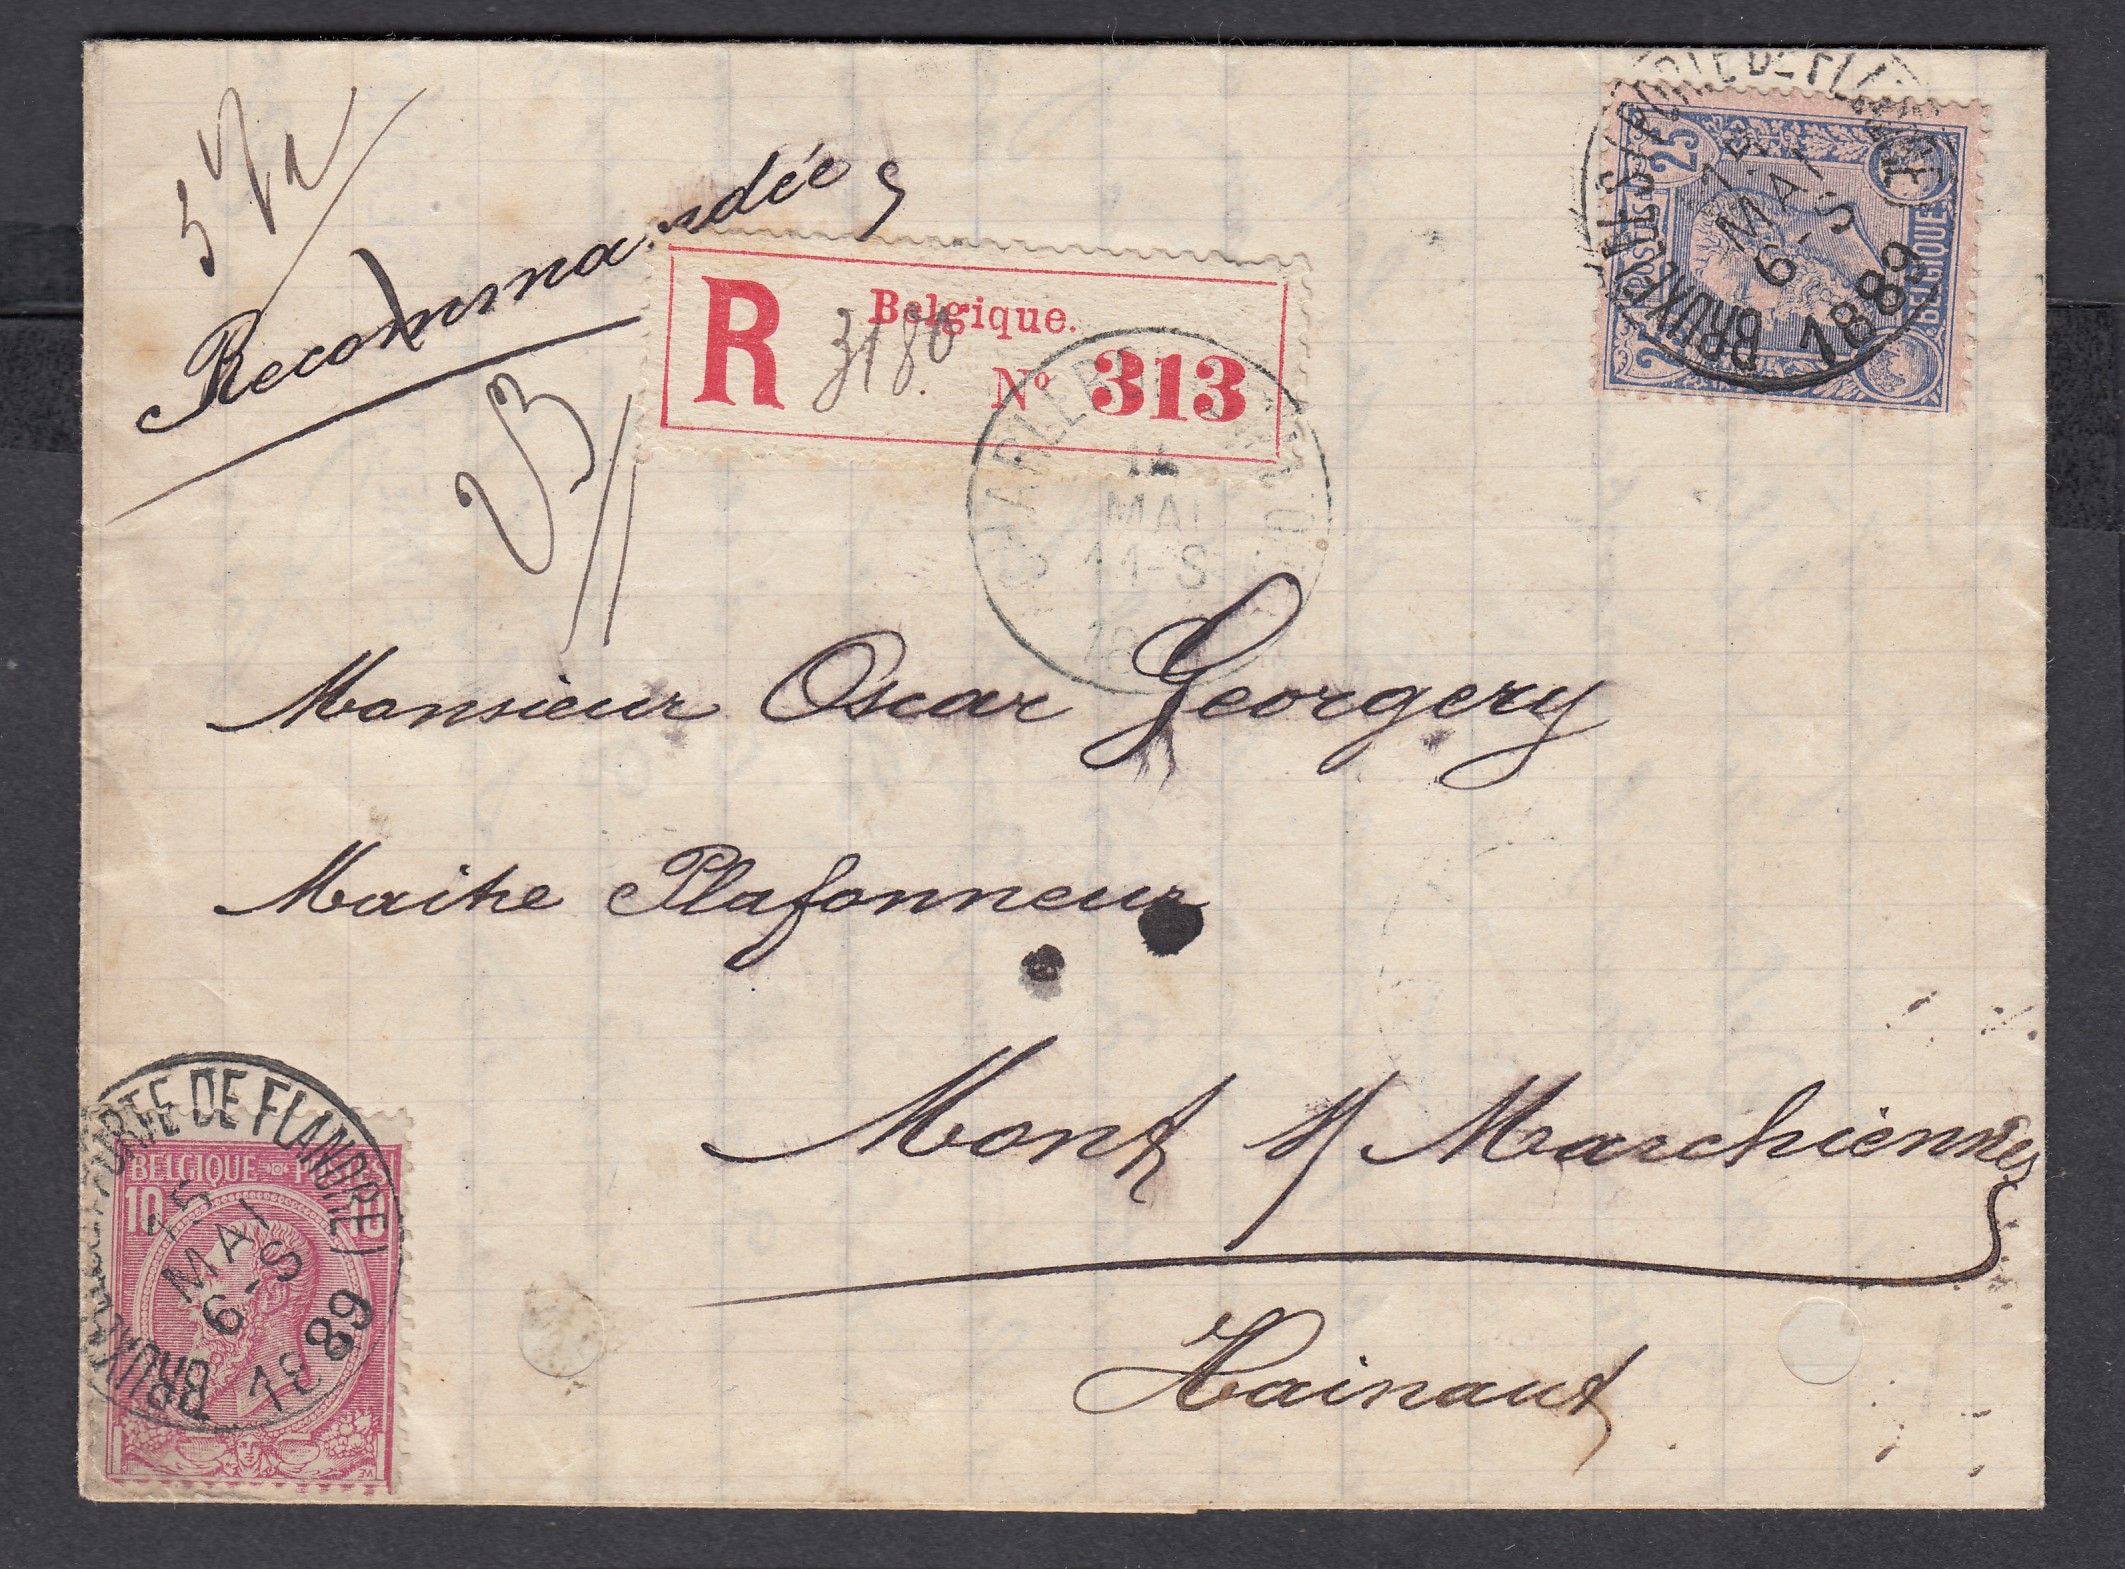 Recommandée
R Belgique.
3180
Nº 313
BRUXELLES (PORTE DE FLANDRE)
MAI
6-S
1889
25 25
POSTES BELGIQUE
CHARLEROI
MAI
11-S
Monsieur Oscar Georgery
Maitre Plafonneur
Mont s/ Marchiennes
Hainaut
BRUXELLES (PORTE DE FLANDRE)
15
MAI
6-S
1889
BELGIQUE POSTES
10 10